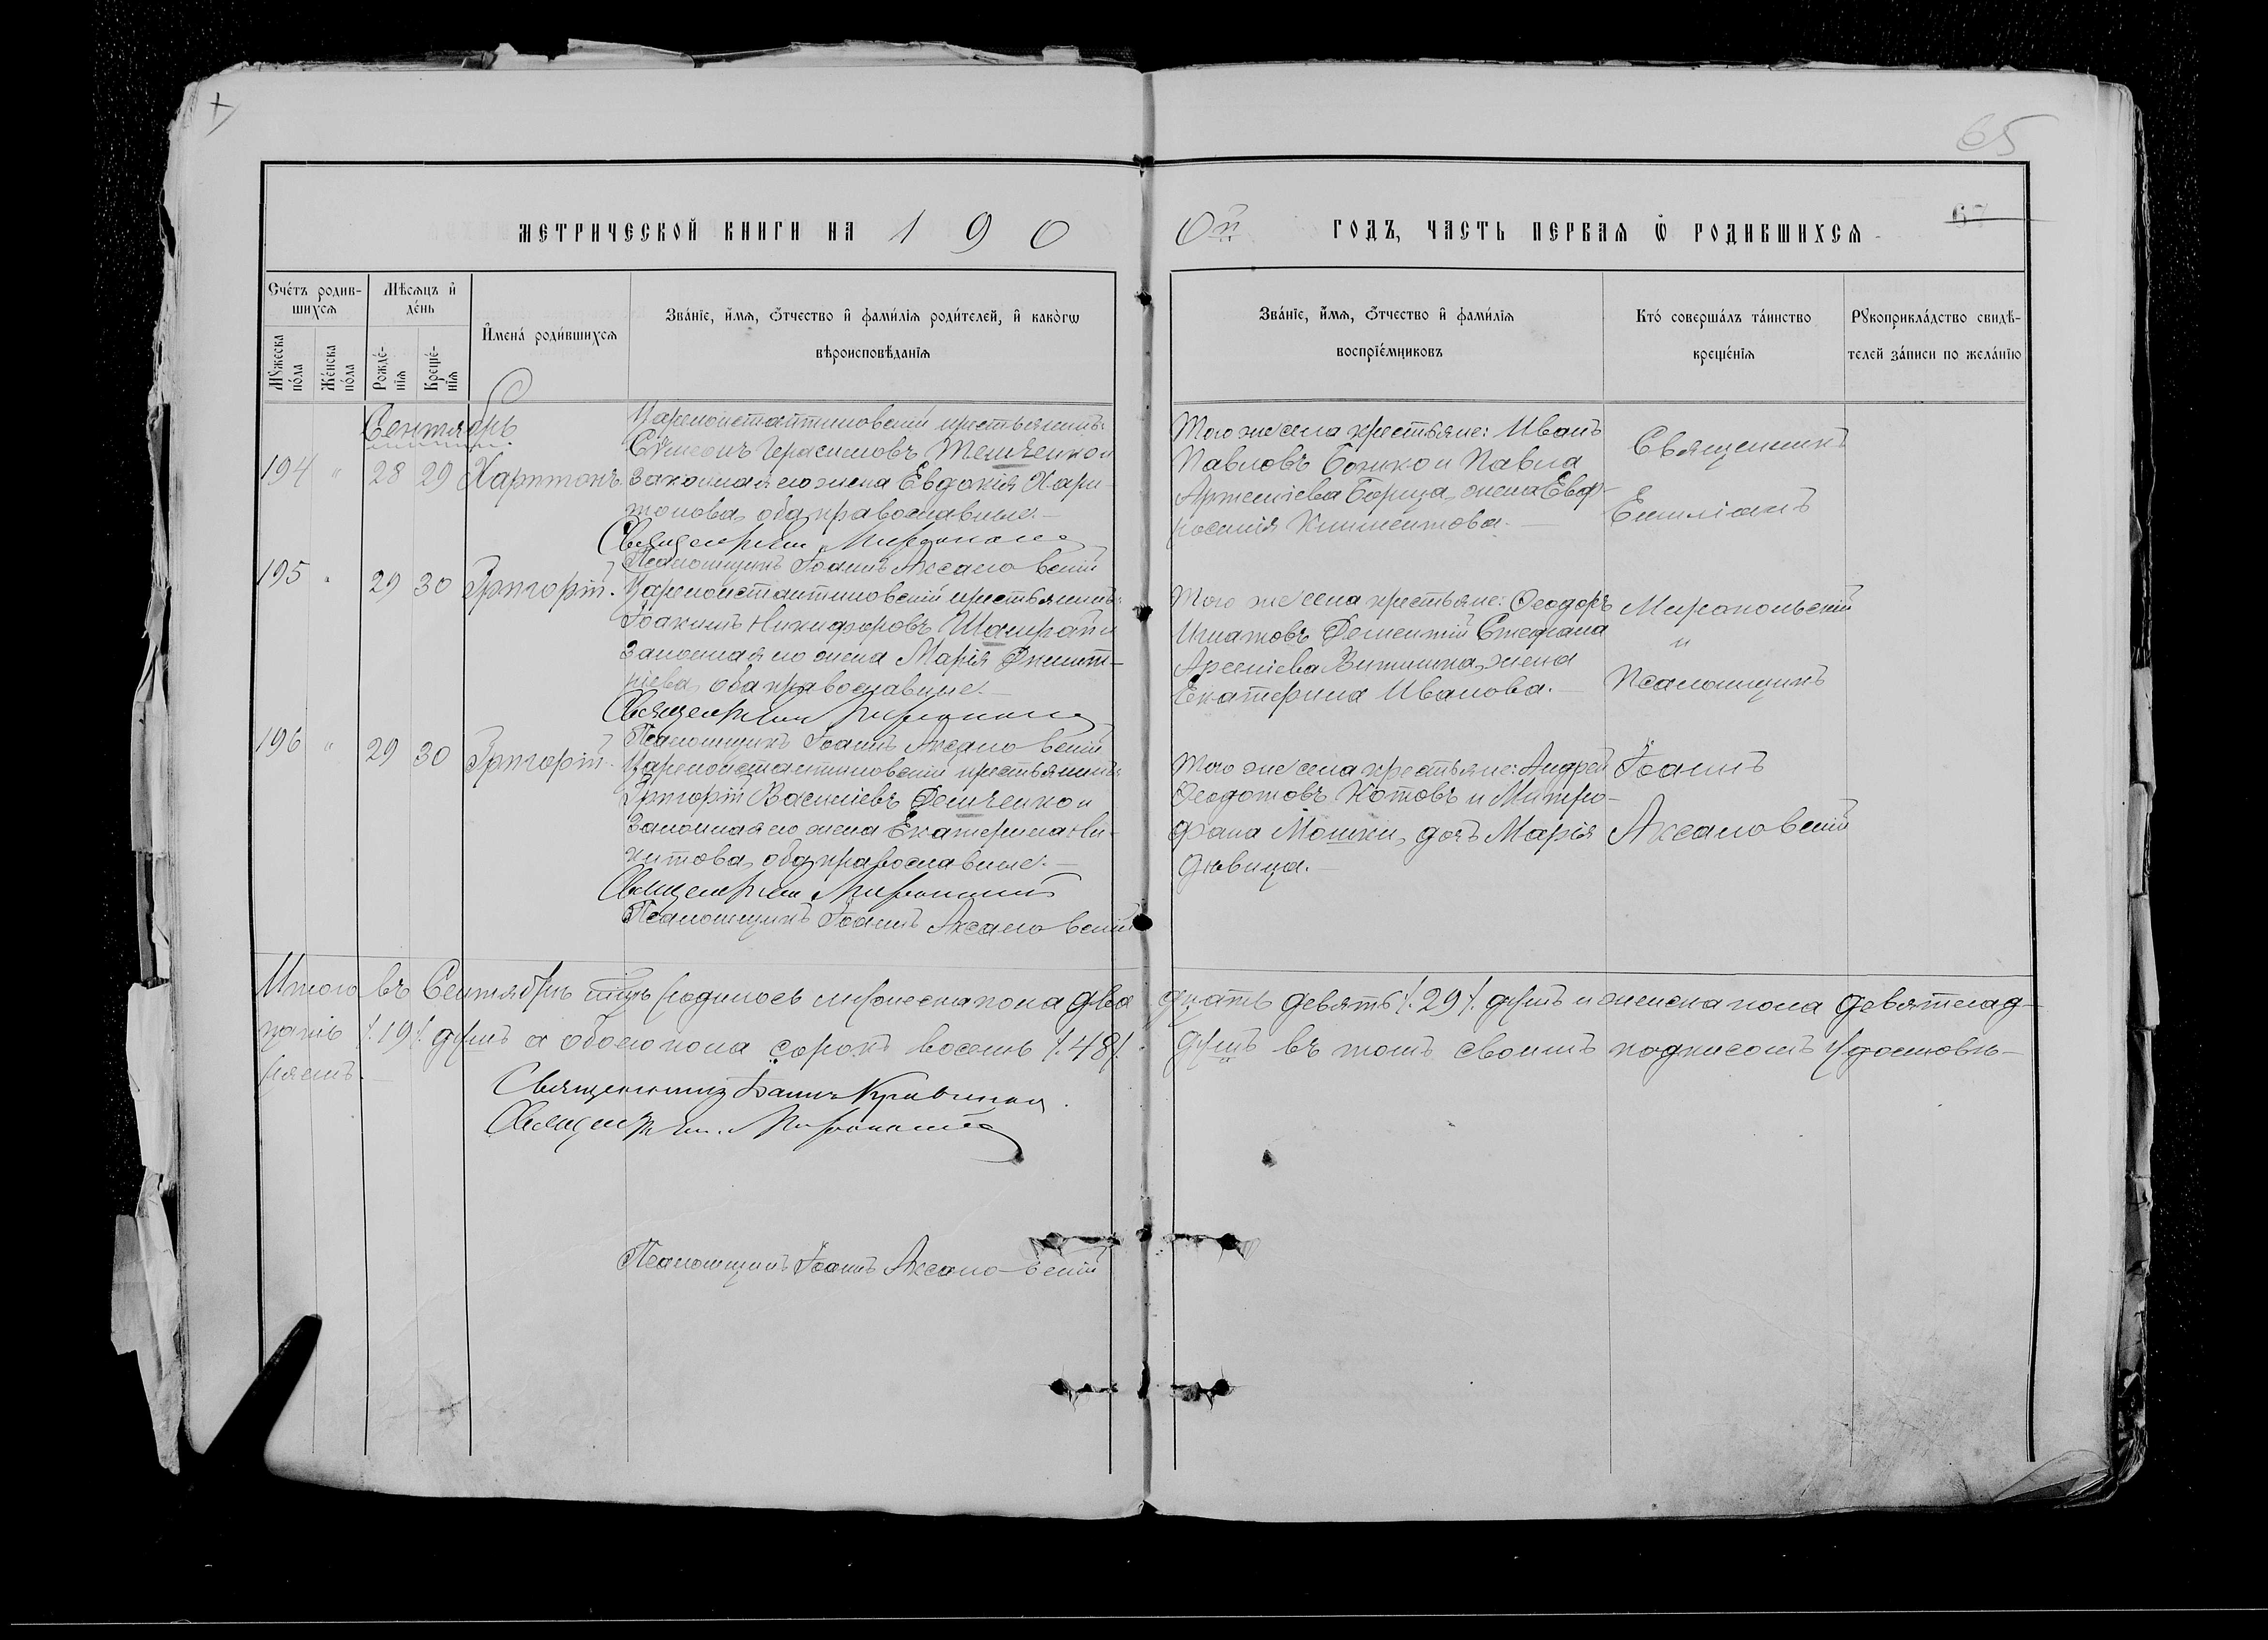 65
67
МЕТРИЧЕСКОЙ КНИГИ НА 190
0й ГОДЪ, ЧАСТЬ ПЕРВАЯ Ѿ РОДИВШИХСЯ
Сче́тъ родив-
шихся
Мꙋжеска по́ла
Же́нска по́ла
Мѣ́сяцъ и҆ де́нь
Рожде́-
нїя
Креще́-
нїя
И҆мена́ роди́вшихся
Зва́нїе, и҆́мя, ѻ҆́тчество и҆ фами́лїя роди́телей, и҆ како́гѡ
вѣроисповѣ́данїя
Зва́нїе, и҆́мя, ѻ҆́тчество и҆ фами́лїя
воспрїе́мниковъ
Кто́ соверша́лъ та́инство
креще́нїя
Рꙋкоприкла́дство свидѣ́-
телей за́писи по жела́нїю
Сентябрь
194 " 28 29 Харитонъ.
Цареконстантиновскій крестьянинъ:
Сѵмеонъ Герасимовъ Темченко и
законная его жена Евдокія Хари-
тонова, оба православные.—
Псаломщикъ Іоаннъ Аксановскій
Того же села крестьяне: Иванъ
Павловъ Божко и Павла
Артеміева Борца, жена Евф-
росинія Климентова.—
Священникъ
Емиліанъ
195 " 29 30 Григорій.
Цареконстантиновскій крестьянинъ:
Іоакимъ Никифоровъ Шамрай и
Законная его жена Марія Димит-
ріева, оба православные.—
Псаломщикъ Іоаннъ Аксановскій
Того же села крестьяне: Ѳеодоръ
Игнатовъ Дементій Стефана
Арсеніева, жена
Екатерина Иванова.—
Миропольскій
и
Псаломщикъ
196 " 29 30 Григорій.
Цареконстантиновскій крестьянинъ:
Григорій Василіевъ Демченко и
Законная его жена Екатерина Ни-
китова, оба православные.—
Псаломщикъ Іоаннъ Аксановскій
Того же села крестьяне: Андрей
Ѳеодотовъ Котовъ и Митро-
фана Мошки, дочь Марія
дѣвица.—
Іоаннъ
Аксановскій
Итого въ Сентябрѣ мѣсяцѣ родилось мужеска пола два
дцать девять /.29/. душъ и женска пола девятнад-
цать /.19/. душъ а обоего пола сорокъ восемь /.48/.
душъ въ томъ своимъ подписомъ удостовѣ-
ряемъ.—
Священникъ Іоаннъ
Псаломщикъ Іоаннъ Аксановскій